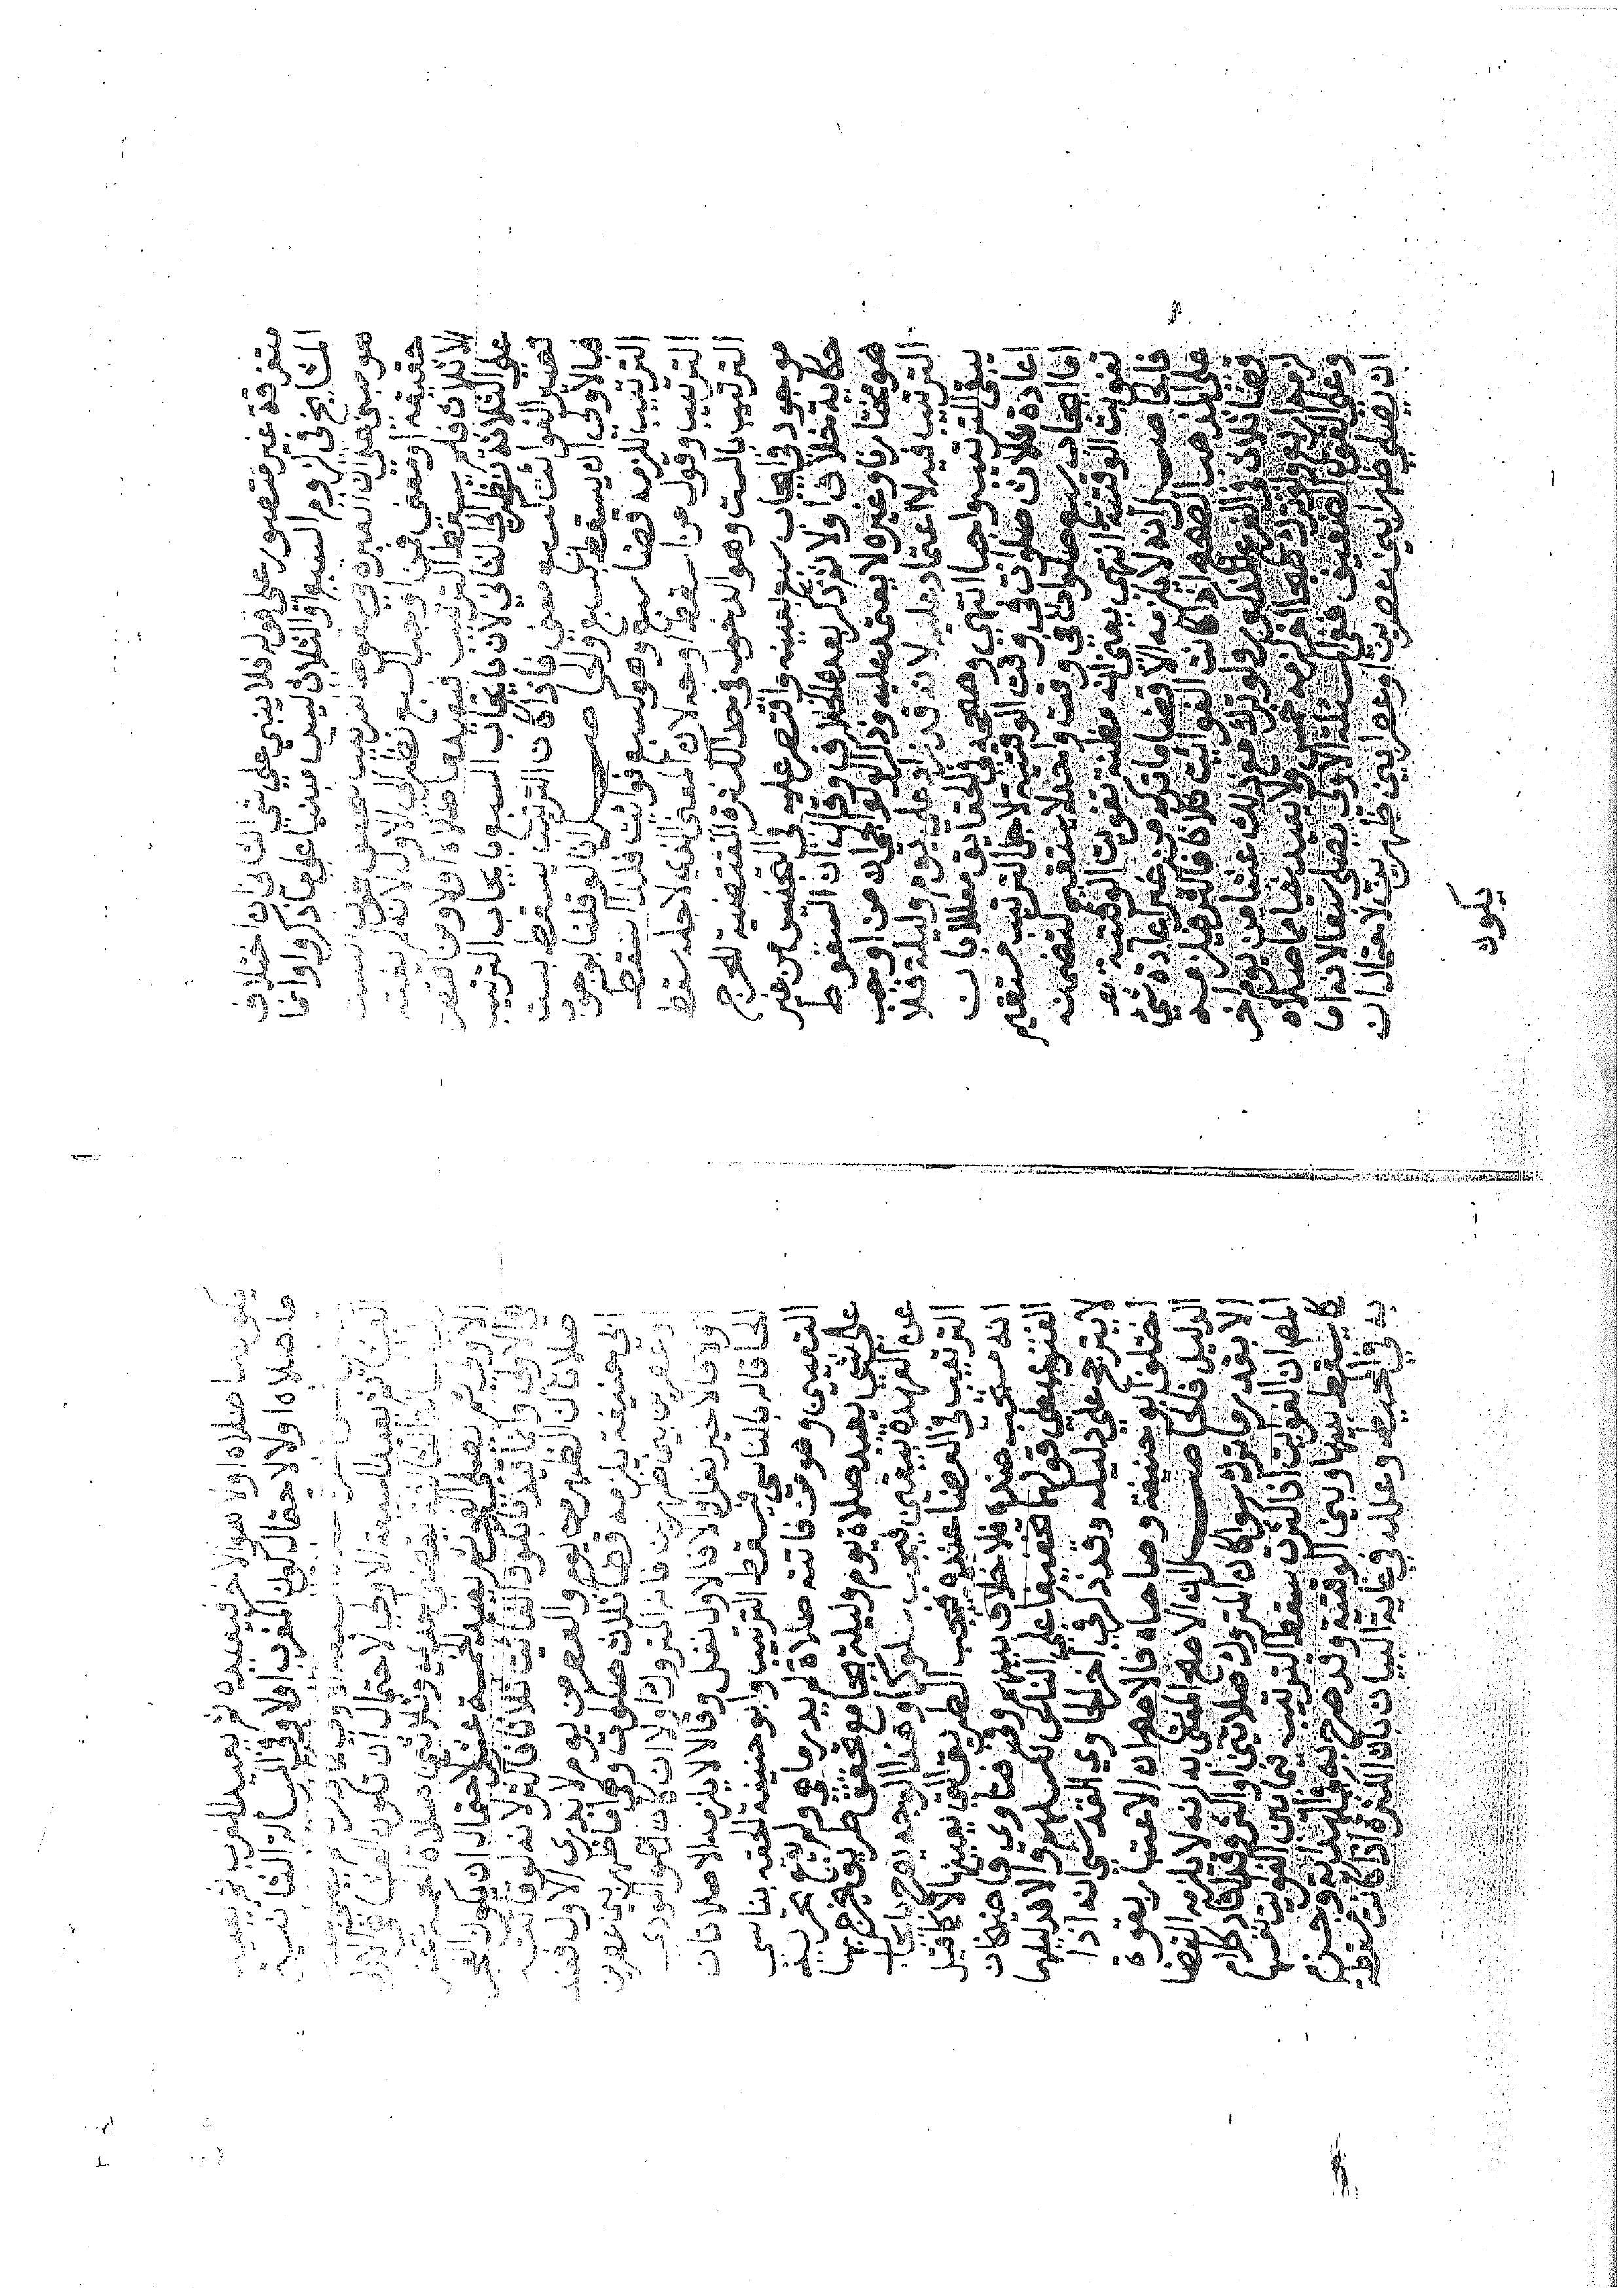 متفرقة غير متصور على قوله فلا ينبني علي شي الثاني ان اختلاف
المشايخ في لزوم السبع او الثلاث ليس مبنيا علي ما ذكروا وانما
هو مبني على ان العبرة في سقوط الترتيب
حقيقة او معنى فمن اوجب السبع نظر الى الاول لانه لم يفته
الا ثلاث فلم يسقط الترتيب فيعيد ما صلاه اولا ومن اقتصر
علي الثلاثة نظر الى الثاني لان بايجاب السبع بايجاب الترتيب
تصير الفوائت كسبع معنى فاذا كان الترتيب يسقط بست
فبالاولى ان يسقط بسبع والحاصل انا لو قلنا بوجوب
الترتيب للزمه قضا سبع وهو كسبع فوائت فلذا اسقط
الترتيب وقول من اسقطه اوجه لان المعنى الذي لاجله سقط
الترتيب بالست وهو الدخول في حد الكثرة المقتضية للحرج
موجود في ايجاب سبع بعينه واقتصر عليه في التجنيس من غير
حكاية خلاف اولا ثم ذكر بعده الخلاف وقال ان السقوط
هو مختارنا وغيره لا يعتمد عليه وذكر الولوالجي ان من اوجب
الترتيب فيه لا اعتماد عليه لانه قد زاد علي يوم وليلة فلا
يبقى الترتيب واجبا انتهى وصححه في الحقايق معللا بان
اعادة ثلاث صلوات في وقت الوقتية لاجل الترتيب مستقيم
اما ايجاب سبع صلوات في وقت واحد لا يستقيم لتضمنه
تفويت الوقتية انتهى يعني انه مظنة تفويت الوقتية
فالحاصل انه لا يلزمه الا قضا ما تركه من غير اعادة شي
على المذهب الصحيح اذا كانت الفوايت ثلاثا فاكثر فيلزمه
قضا ثلاث في الفرع المذكور ولو ترك مع ذلك عشا من يوم اخر
لزمه اربع ولو ترك صبحا اخر لزمه خمس ولا يعيد شيا مما صلاه
وعلى القول الضعيف ففي المسئلة الاولى يصلي سبعا لانه اما
ان يصلي ظهرا بين عصرين او عصرا بين ظهرين لاحتمال ان
يكون
يكون ما صلاه اولا هو الاخر فيعيده ثم يعيد المغرب ثم يعيد
ما صلاه اولا لاحتمال كون المغرب اولا وفي المسالة الثانية
ثم يفعل السبعة الاولى لاحتمال ان تكون العشا هي
الاولى ثم يصلي الفجر ثم يعيد الخمسة عشر لاحتمال ان يكون الفجر
هي الاولى وانما قيد بكون الفائت ثلاثا فاكثر لانه لو فاته
صلاتان الظهر من يوم والعصر من يوم لا يدري الاول فعند
ابي حنيفة يلزمه قضا ثلاث صلوات وهو اما ظهر بين عصرين
او عصر بين ظهرين فانه المتروك اولا ان كان هو الذي
اولا فالاخير نفل والا فالاول نفل وقالا لا يلزمه الا صلاتان
الحاقا له بالناسي فيسقط الترتيب وابو حنيفة الحقه بناسي
التعيين وهو من فاتته صلاة لم يدر ما هي ولم يقع تحريه
على شي يعيد صلاة يوم وليلة بجامع تحقق طريق يخرج بها
عن العهدة بيقين فيجب سلوكها وهذا الوجه يصرح بايجاب
الترتيب في القضا عنده فيجب الطريق التي يعينها لا كما قيل
انه مستحب عنده فلا خلاف بينهم وفي فتاوي قاضيخان
الفتوى على قولهما تخفيفا علي الناس لكسلهم والا فدليلهما
لا يترجح علي دليله وقد ذكر في اخر الحاوي القدسي انه اذا
اختلف ابو حنيفة وصاحباه فالاصح ان الاعتبار بقوة
الدليل فالحاصل ان الاصح المفتى به انه لا يلزمه القضا
الا بقدر ما ترك سوا كان المتروك صلاتين او اكثر وقد افاد كلام
المص ان الفوايت اذا كثرت سقط الترتيب فيما بين الفوايت نفسها
كما يسقط بينها وبين الوقتية وقد صرح به في الهداية وجزم
به في المحيط وعلله في غاية البيان بان الكثرة اذا كانت مسقطة